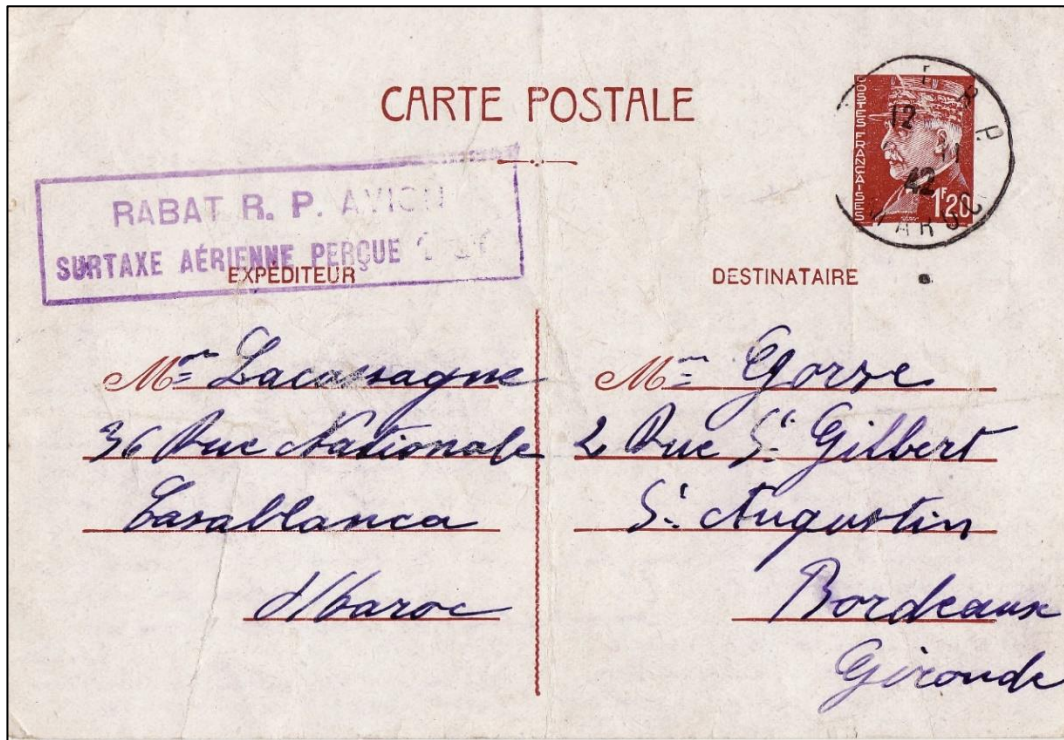 CARTE POSTALE
POSTES FRANÇAISES
1F20
R P.
12
11
42
MAROC
RABAT R. P. AVION
SURTAXE AÉRIENNE PERÇUE
EXPÉDITEUR
Mme Lacassagne
36 Rue Nationale
Casablanca
Maroc
DESTINATAIRE
Mme Gorse
2 Rue St Gilbert
St Augustin
Bordeaux
Gironde